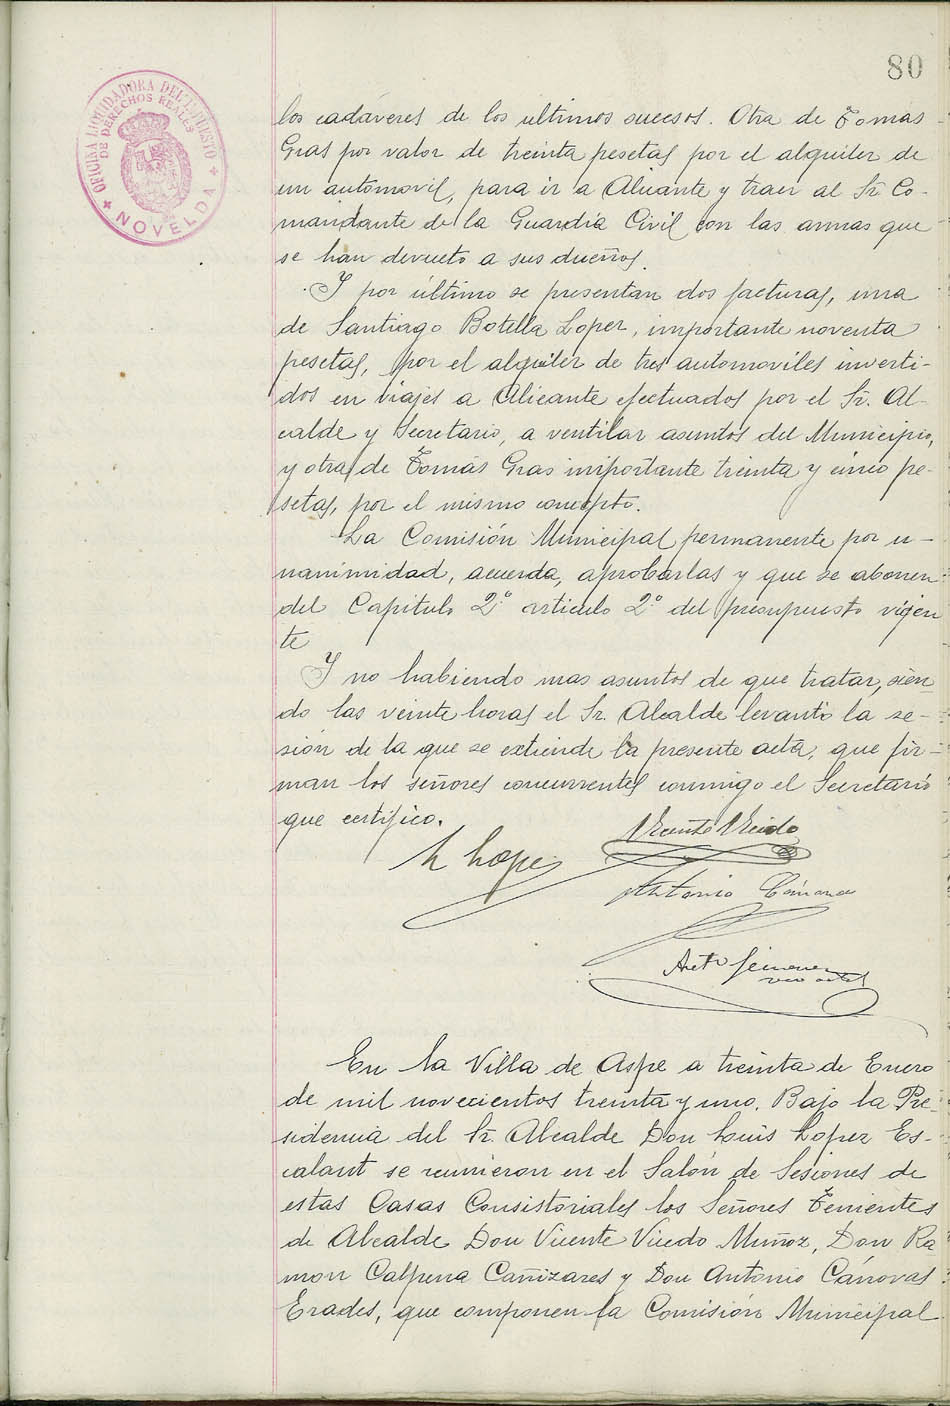 80
OFICINA LIQUIDADORA DEL IMPUESTO
DE DERECHOS REALES
NOVELDA
los cadáveres de los ultimos sucesos. Otra de Tomas
Gras por valor de treinta pesetas por el alquiler de
un automovil, para ir a Alicante y traer al Sr. Co-
mandante de la Guardia Civil con las armas que
se han devuelto a sus dueños.
Y por último se presentan dos facturas, una
de Santiago Botella Lopez, importante noventa
pesetas, por el alquiler de tres automoviles inverti-
dos en viajes a Alicante efectuados por el Sr. Al-
calde y Secretario, a ventilar asuntos del Municipio,
y otra de Tomás Gras importante treinta y cinco pe-
setas, por el mismo concepto.
La Comisión Municipal permanente por u-
nanimidad, acuerda, aprobarlas y que se abonen
del Capitulo 2º articulo 2º del presupuesto vigen
te
Y no habiendo mas asuntos de que tratar, sien-
do las veinte horas el Sr. Alcalde levantó la se-
sión de la que se extiende la presente acta, que fir-
man los señores concurrentes conmigo el Secretario
que certifico.
Vicente Vicedo
L Lopez
Antonio Cánovas
Anto Jimenez
En la Villa de Aspe a treinta de Enero
de mil novecientos treinta y uno. Bajo la Pre-
sidencia del Sr. Alcalde Don Luis Lopez Es-
calant se reunieron en el Salón de Sesiones de
estas Casas Consistoriales los Señores Tenientes
de Alcalde Don Vicente Vicedo Muñoz, Don Ra
mon Calpena Cañizares y Don Antonio Cánovas
Erades, que componen la Comisión Municipal